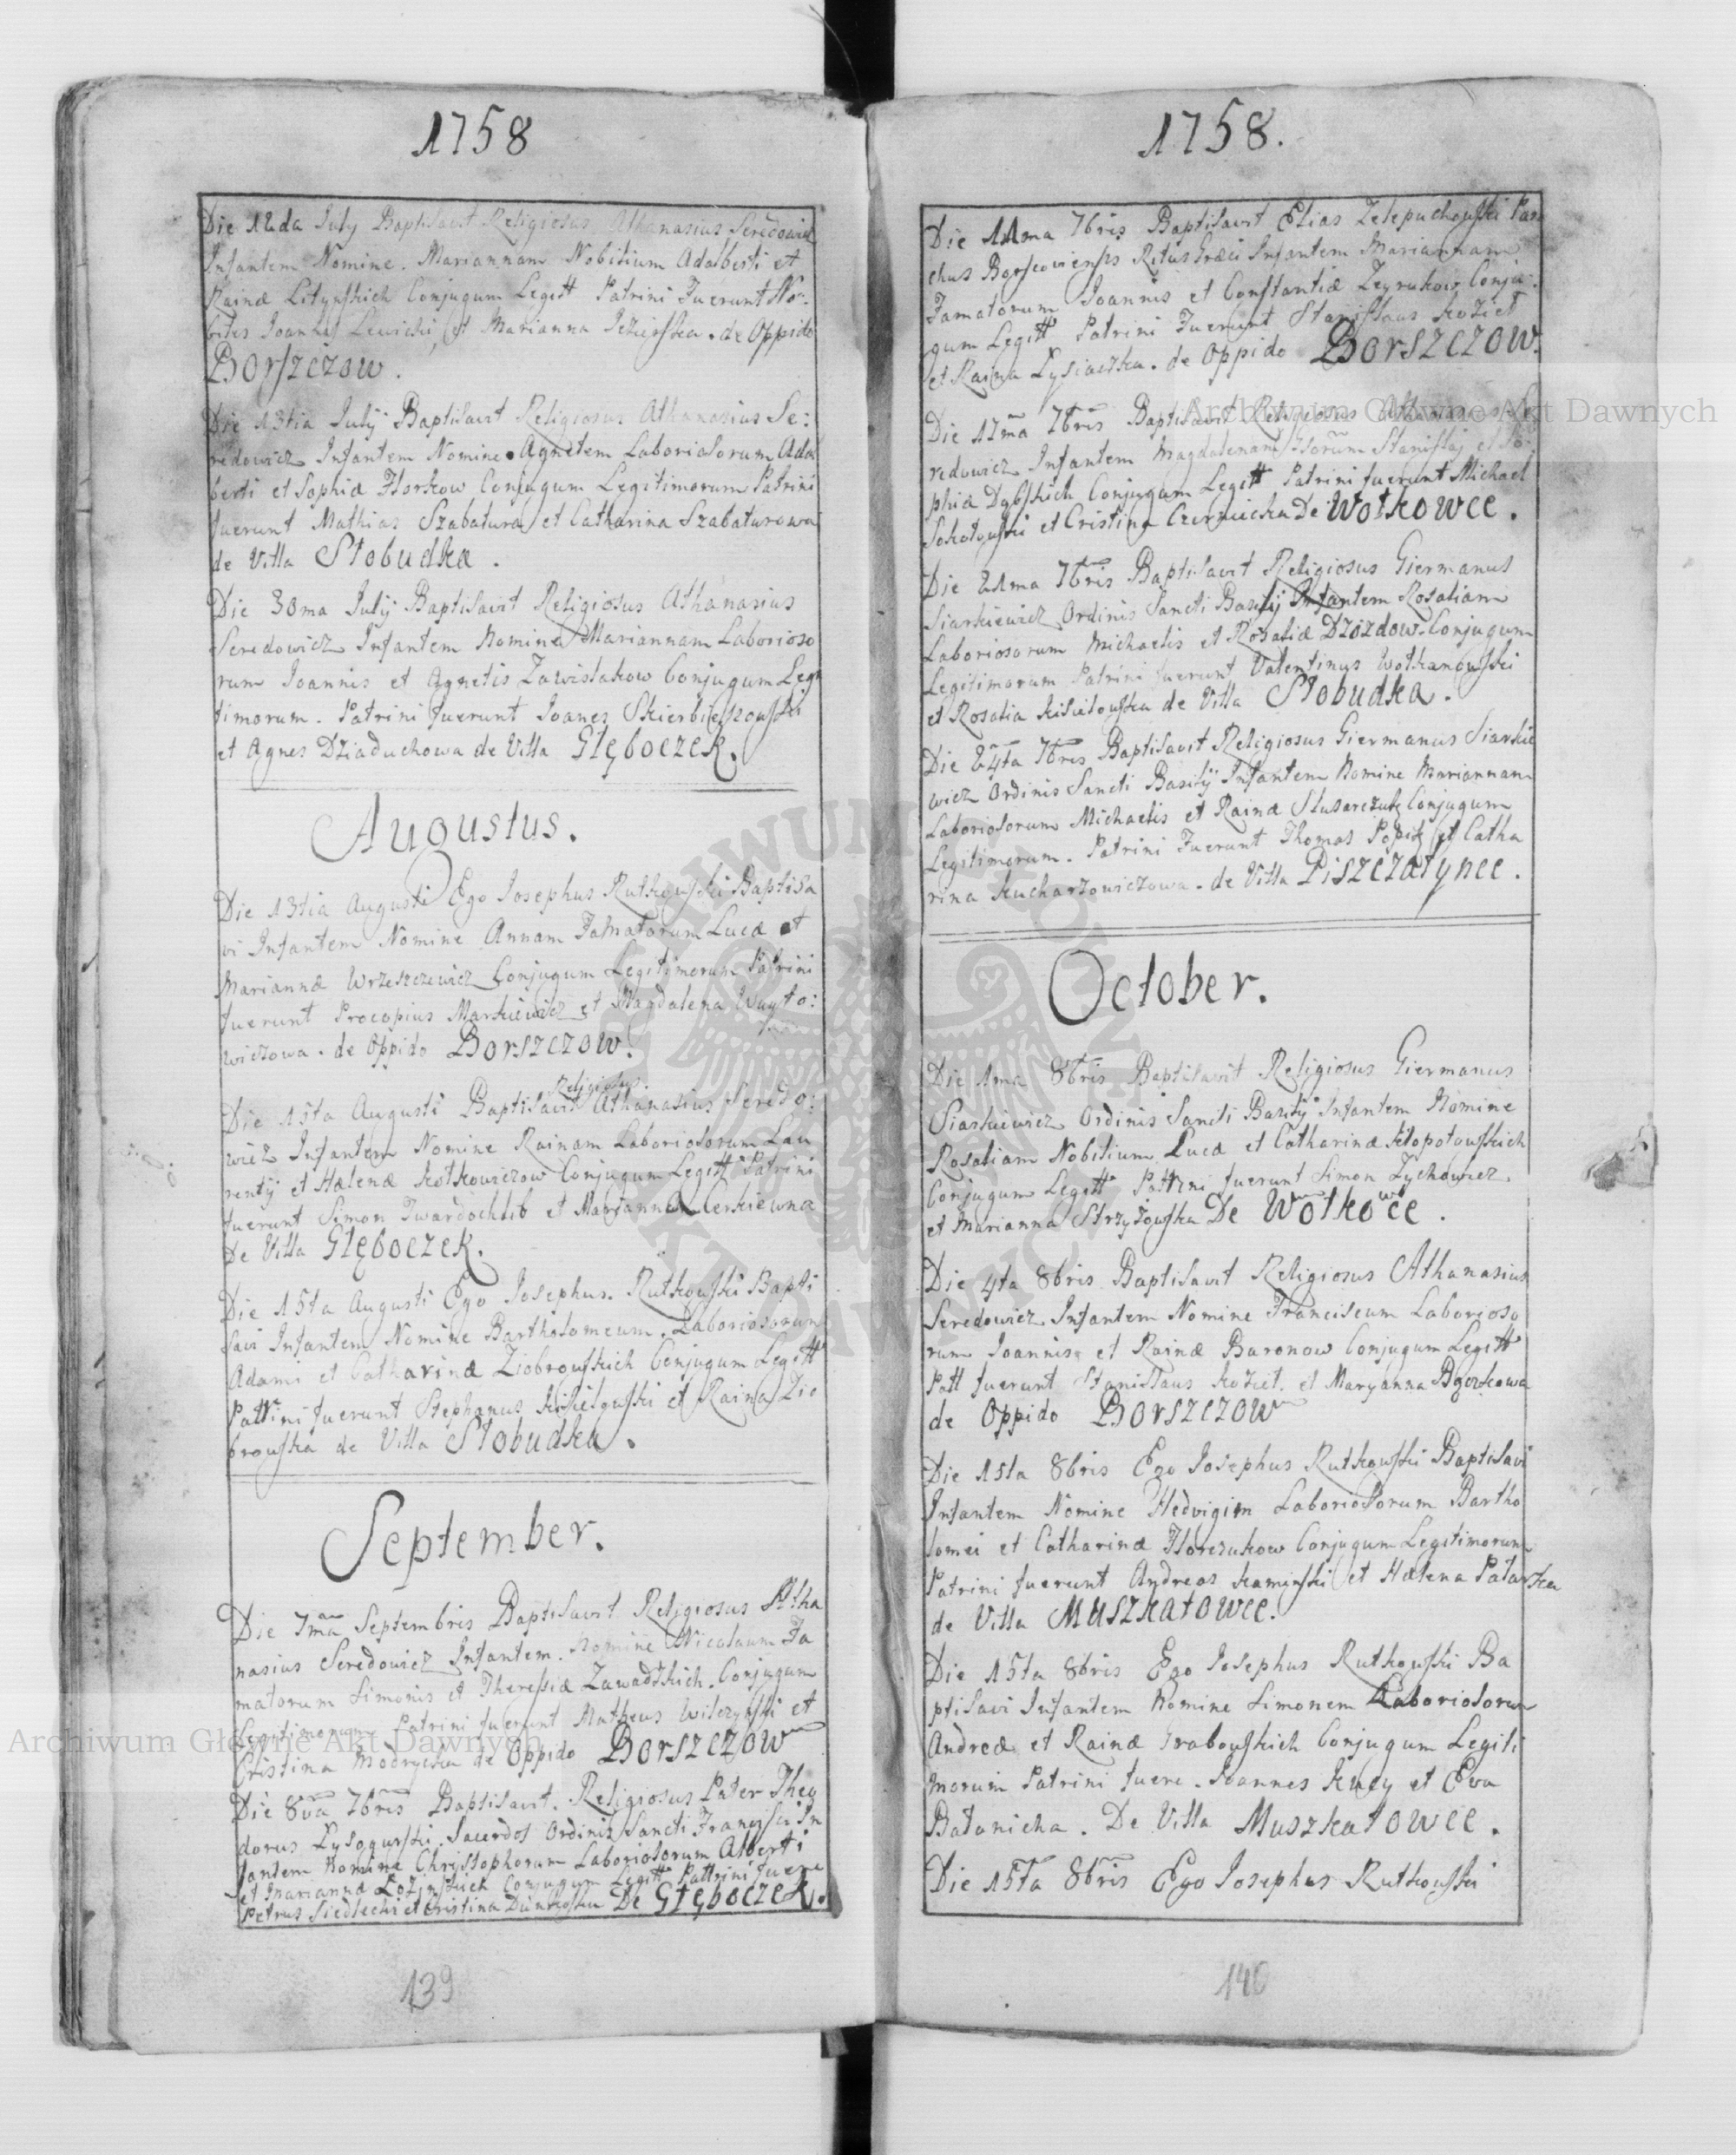 1758
Die 12da July Baptisavit Religiosus Athanasius Seredowicz
Infantem Nomine. Mariannam Nobilium Adalberti et
Rainæ Lityńskich Conjugum Legitt Patrini Fuerunt No:
biles Joannes Lewicki, et Marianna Jezierska. de Oppido
Borszczow.
Die 13tia July Baptisavit Religiosus Athanasius Se:
redowicz Infantem Nomine Agnetem Laboriosorum Adal
berti et Sophiæ Florkow Conjugum Legitimorum Patrini
fuerunt Mathias Szabatura et Catharina Szabaturowa
de Villa Słobudka.
Die 30ma July Baptisavit Religiosus Athanasius
Seredowicz Infantem Nomine Mariannam Laborioso
rum Joannis et Agnetis Zawislakow Conjugum Legi
timorum. Patrini fuerunt Joanes Skierbieszowski
et Agnes Dziaduchowa de Villa Głęboczek.
Augustus.
Die 13tia Augusti Ego Josephus Rutkowski Baptisa
vi Infantem Nomine Annam Famatorum Lucæ et
Mariannæ Wrzeszczewicz Conjugum Legitimorum Patrini
fuerunt Procopius Markiewicz et Magdalena Wuyto:
wiczowa. de Oppido Borszczow.
Religiosus.
Die 15ta Augusti Baptisavit Athanasius Seredo:
wicz Infantem Nomine Rainam Laboriosorum Lau
rentij et Helenæ Kotkowiczow Conjugum Legitt Patrini
fuerunt Simon Twardochlib et Marjanna Cerkiewna
De Villa Głęboczek.
Die 15ta Augusti Ego Josephus. Rutkowski Bapti
savi Infantem Nomine Bartholomeum. Laboriosorum
Adami et Catharinæ Ziobrowskich Conjugum Legitt
Pattrini fuerunt Stephanus Kisielowski et Raina Zio
browska de Villa Słobudka.
September.
Die 7ma Septembris Baptisavit Religiosus Atha
nasius Seredowicz Infantem. Nomine Nicolaum Fa
matorum Simonis et Theressiæ Zawadzkich. Conjugum
Legitimorum Patrini fuerunt Matheus Wilczyński et
Cristina Modrycka de Oppido Borszczow
Die 8va 7bris Baptisavit. Religiosus Pater Theo
dorus Łysogurski. Sacerdos Ordinis Sancti Francisci In
fantem Nomine Chrystophorum Laboriosorum Alberti
et Mariannæ Łozinskich Conjugum Legitt Pattrini fuere
Petrus Siedlecki et Cristina Dunkoska De Głęboczek.
139
1758.
Die 11ma 7bris Baptisavit Elias Zelepuchowski Paro
chus Borscoviensis Ritus Græci Infantem Mariannam
Famatorum Joannis et Constantiæ Zeyrukow Conju:
gum Legitt Patrini Fuerunt Stanislaus Koziet
et Raina Łysiaczka. de Oppido Borszczow.
Die 17ma 7bris Baptisavit Religiosus Athanasius Se
redowicz Infantem Magdalenam Gsorum Stanislaj et So:
phiæ Dąbskich Conjugum Legitt Patrini fuerunt Michael
Sokołowski et Cristina Czernicka De Wołkowce.
Die 21ma 7bris Baptisavit Religiosus Giermanus
Siarkiewicz Ordinis Sancti Basilij Infantem Rosaliam
Laboriosorum Michaelis et Rosaliæ Dzozdow. Conjugum
Legitimorum Patrini fuerunt Valentinus Wołkanowski
et Rosalia Kisielowska de Villa Słobudka.
Die 24ta 7bres Baptisavit Religiosus Giermanus Siarkie
wicz Ordinis Sancti Basilij Infantem Nomine Mariannam
Laboriosorum Michaelis et Rainæ Slusarczuk Conjugum
Legitimorum. Patrini Fuerunt Thomas Popik et Catha
rina Kucharzowiczowa. de Villa Piszczatynce.
October.
Die 1ma 8bris Baptisavit Religiosus Giermanus
Siarkiewicz Ordinis Sancti Basilij Infantem Nomine
Rosaliam Nobilium Lucæ et Catharinæ Kłopotowskich
Conjugum Legitt Pattrini fuerunt Simon Zychowicz
et Marianna Strzyżowska De Wołkowce.
Die 4ta 8bris Baptisavit Religiosus Athanasius
Seredowicz Infantem Nomine Franciscum Laborioso
rum Joannis et Rainæ Baronow Conjugum Legitt
Patt fuerunt Stanislaus Koziet. et Maryanna Bgorkowa
de Oppido Borszczow
Die 15ta 8bris Ego Josephus Rutkowski Baptisavi
Infantem Nomine Hedvigim Laboriosorum Bartho
lomei et Catharinæ Florczukow Conjugum Legitimorum
Patrini fuerunt Andreas Kaminski et Hælena Patarska
de Villa Muszkatowce.
Die 15ta 8bris Ego Josephus Rutkowski Ba
ptisavi Infantem Nomine Simonem Laboriosorum
Andreæ et Rainæ Grabowskich Conjugum Legiti
morum Patrini fuere. Joannes Kucy et Eva
Batanicha. De Villa Muszkatowce.
Die 15ta 8bris Ego Josephus Rutkowski
140
Archiwum Główne Akt Dawnych
Archiwum Główne Akt Dawnych